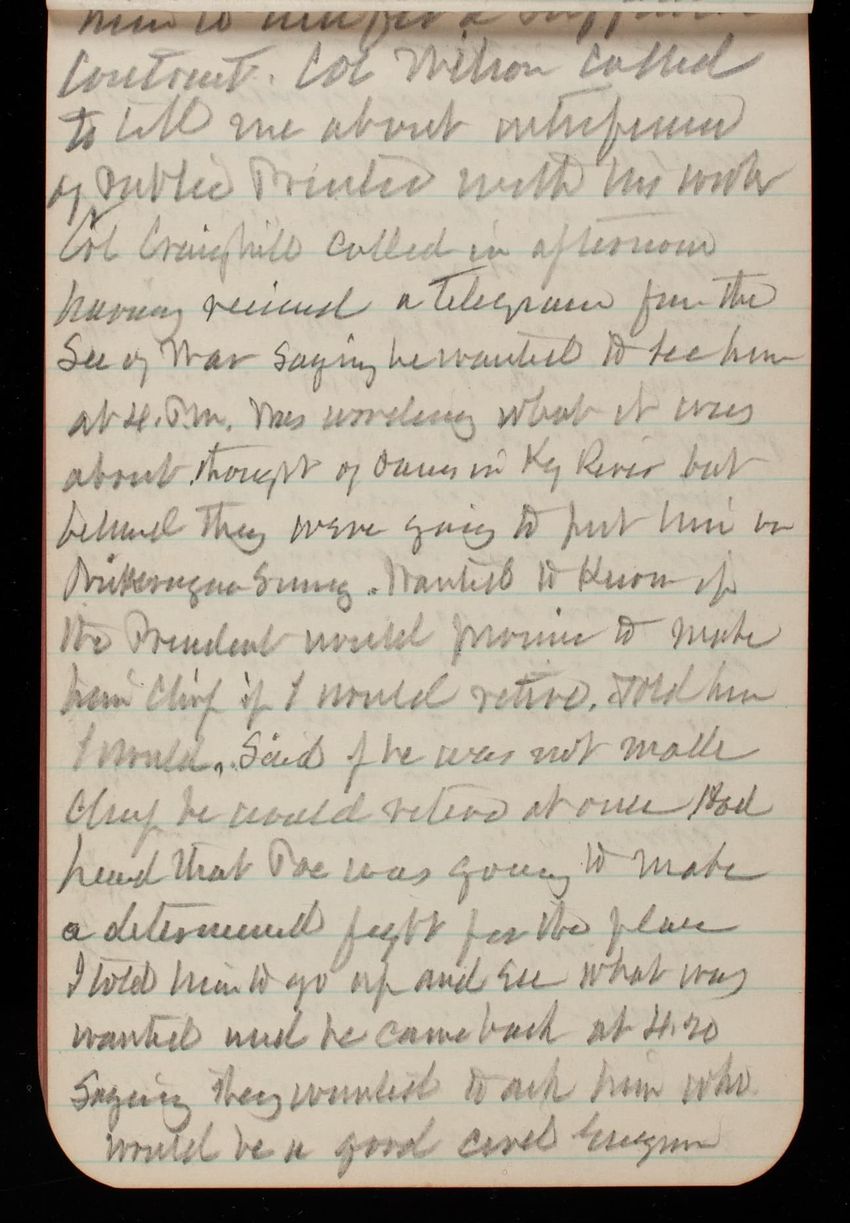 him to
Contract. Col Wilson called
to tell me about interference
of Public Printer with his work
Col Craighill called in afternoon
having received a telegram from the
Sec of War saying he wanted to see him
at 4. P.M. Was wondering what it was
about, thought of dams in Ky River but
believed they were going to put him on
Survey. Wanted to know if
the President would promise to make
him Chief if I would retire. Told him
I would. Said if he was not made
Chief he would retire at once Had
heard that Poe was going to make
a determined fight for the place
I told him to go up and see what was
wanted and he came back at 4.20
Saying they wanted to ask him who
would be a good civil Engineer